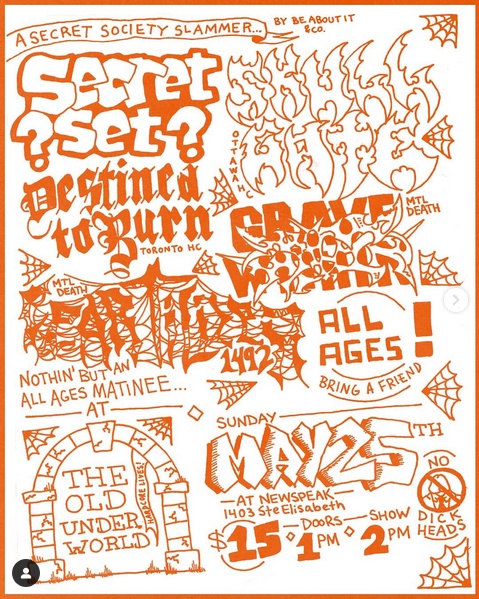 A SECRET SOCIETY SLAMMER...
BY BE ABOUT IT
& CO.
Secret
?Set?
OTTAWA HC
Destined
to Burn
TORONTO HC
GRAVE
MTL
DEATH
MTL
DEATH
1492
ALL
AGES!
BRING A FRIEND
NOTHIN' BUT AN
ALL AGES MATINEE...
AT
THE
OLD
UNDER
WORLD
HARDCORE LIVES!
SUNDAY
MAY 25TH
AT NEWSPEAK
1403 Ste Elisabeth
$15 DOORS 1PM SHOW 2PM
NO
DICK
HEADS